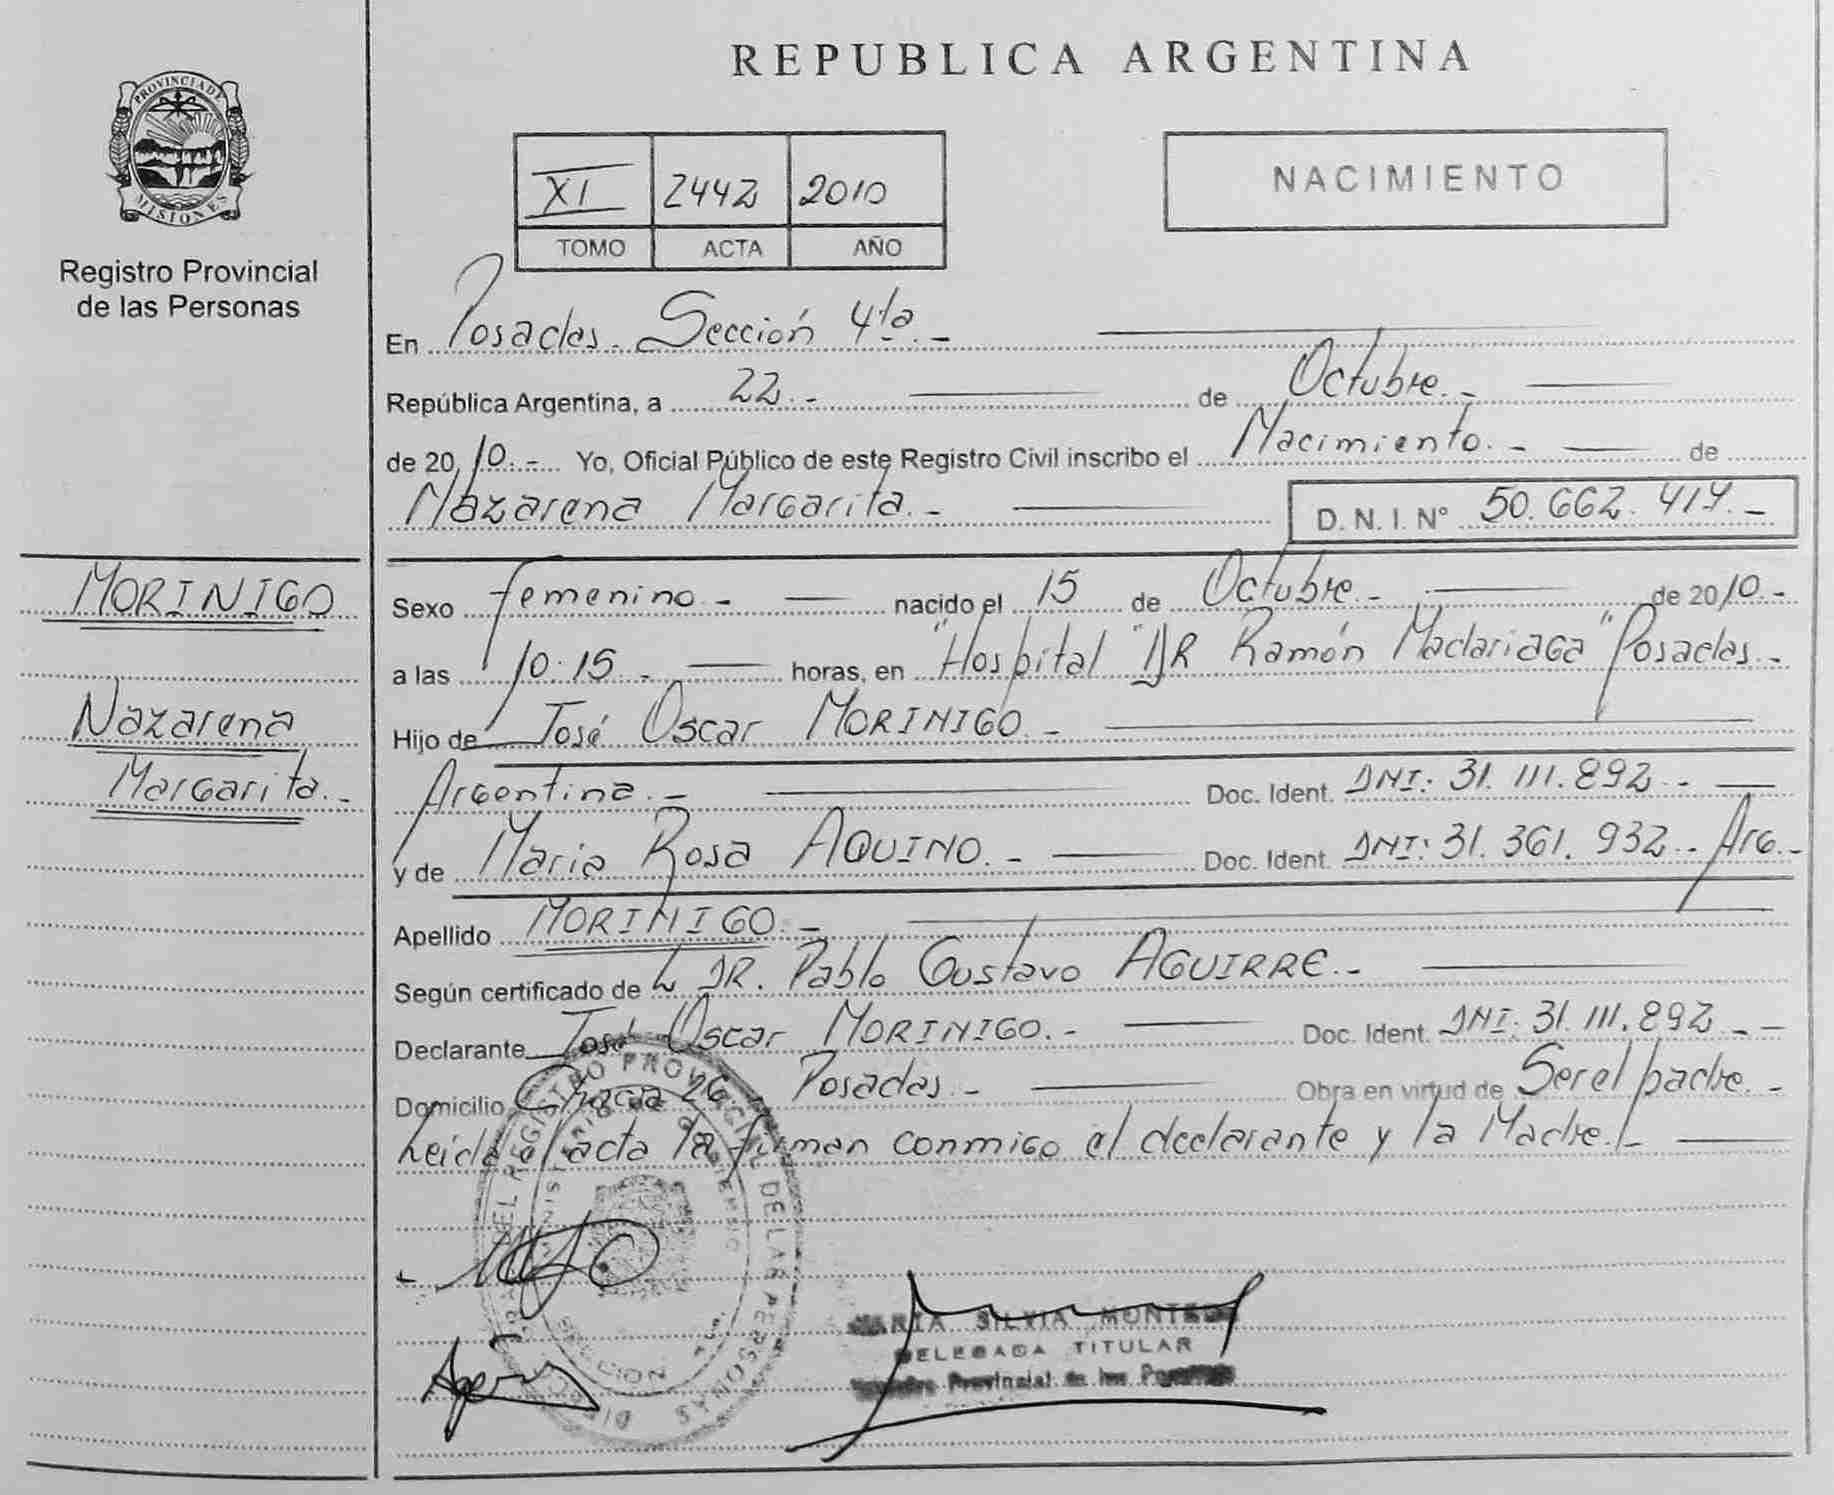 PROVINCIA DE
MISIONES
Registro Provincial
de las Personas
REPUBLICA ARGENTINA
XI 2442 2010
TOMO ACTA AÑO
NACIMIENTO
En Posadas. Sección 4ta.-
República Argentina, a 22.- de Octubre.-
de 2010.- Yo, Oficial Público de este Registro Civil inscribo el Nacimiento.- de
Nazarena Margarita.- D. N. I. Nº 50.662.417.-
MORINIGO
Nazarena
Margarita.-
Sexo femenino.- nacido el 15 de Octubre.- de 2010.-
a las 10:15.- horas, en "Hospital "DR Ramón Madariaga" Posadas.-
Hijo de José Oscar MORINIGO.-
Argentina.- Doc. Ident. DNI: 31.111.892.-
y de Maria Rosa AQUINO.- Doc. Ident. DNI: 31.361.932.- Arg.-
Apellido MORINIGO.-
Según certificado de L DR. Pablo Gustavo AGUIRRE.-
Declarante José Oscar MORINIGO.- Doc. Ident. DNI: 31.111.892.-
Domicilio Chacra 26 Posadas.- Obra en virtud de Ser el padre.-
Leida el acta la firman conmigo el declarante y la Madre.-
DEL REGISTRO PROVINCIAL DE LAS PERSONAS
SECCION
MARIA SILVIA
DELEGADA TITULAR
Registro Provincial de las Personas